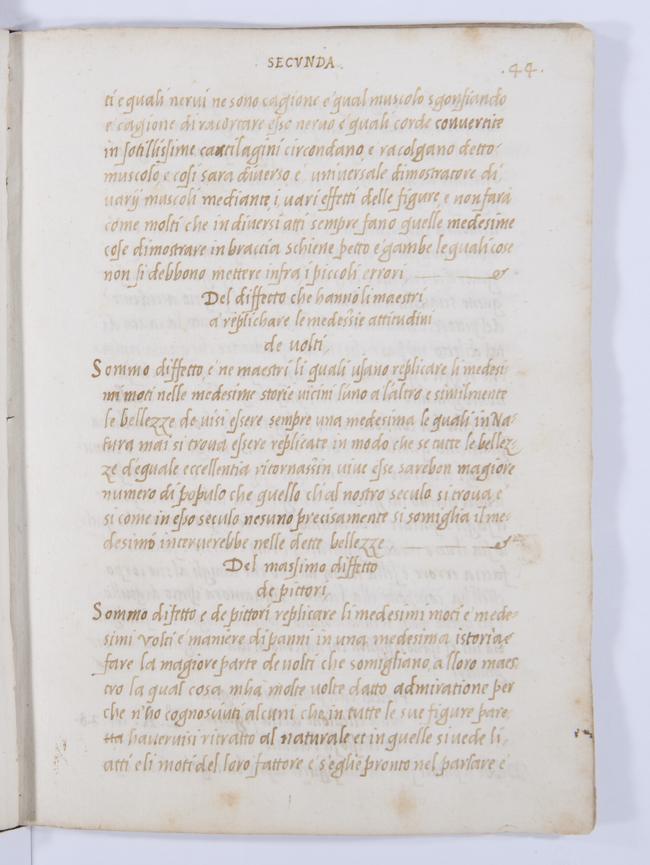 SECVNDA
.44.
ti e quali nervi ne sono cagione e qual muscolo sgonfiando
e cagione di racortare esse nervo e quali corde convertite
in sotillissime cartilagini circondano, e racolgano detto
muscolo, e cosi sara diverso, e universale dimostratore di
varij muscoli mediante i vari effetti delle figure, e non fara
come molti che in diversi atti sempre fano quelle medesime
cose dimostrare in braccia schiene petto e gambe le quali cose
non si debbono mettere infra i piccoli errori
Del diffetto che hanno li maestri
a replichare le medesîe attitudini
de volti
Sommo diffetto, e ne maestri li quali usano replicare li medesi
mi moti nelle medesime storie vicini l'uno a l'altro e similmente
le bellezze de visi essere sempre una medesima le quali in Na-
tura mai si trova essere replicate in modo che se tutte le bellez-
ze d'eguale eccellentia ritornassin vive esse sarebon magiore
numero di populo che quello ch'al nostro seculo si trova, e
si come in esso seculo nesuno precisamente si somiglia il me-
desimo interverebbe nelle dette bellezze
Del massimo diffetto
de pittori,
Sommo difetto e de pittori replicare li medesimi moti e mede-
simi volti e maniere di panni in una medesima istoria e
fare la magiore parte de volti che somigliano, a lloro maes
tro la qual cosa mha molte volte datto admiratione per
che n'ho cognosciuti alcuni che in tutte le sue figure pare
haveruisi ritratto al naturale et in quelle si vede li,
atti e li moti del loro fattore e s'egli e pronto nel parlare e